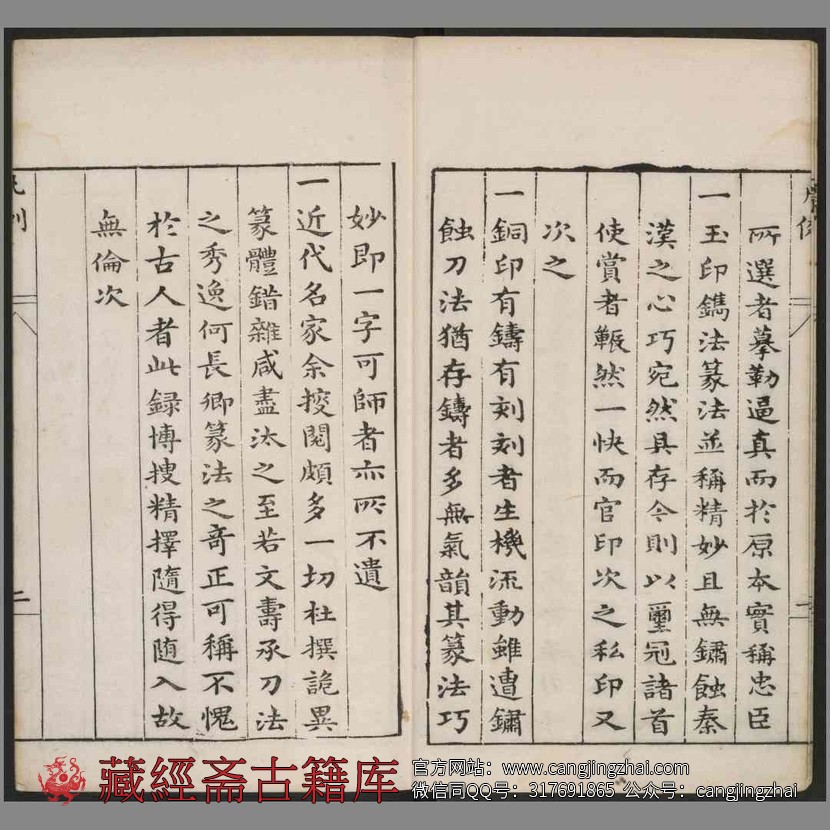 所選者摹勒逼真而於原本實稱忠臣
一玉印鐫法篆法並稱精妙且無鏽蝕秦
漢之心巧宛然具存今則以璽冠諸首
使賞者囅然一快而官印次之私印又
次之
一銅印有鑄有刻刻者生機流動雖遭鏽
蝕刀法猶存鑄者多無氣韻其篆法巧
妙即一字可師者亦所不遺
一近代名家余按閱頗多一切杜撰詭異
篆體錯雜咸盡汰之至若文壽承刀法
之秀逸何長卿篆法之奇正可稱不愧
於古人者此錄博搜精擇隨得隨入故
無倫次
凡例
二
藏經斋古籍库
官方网站：www.cangjingzhai.com
微信同QQ号：317691865 公众号：cangjingzhai